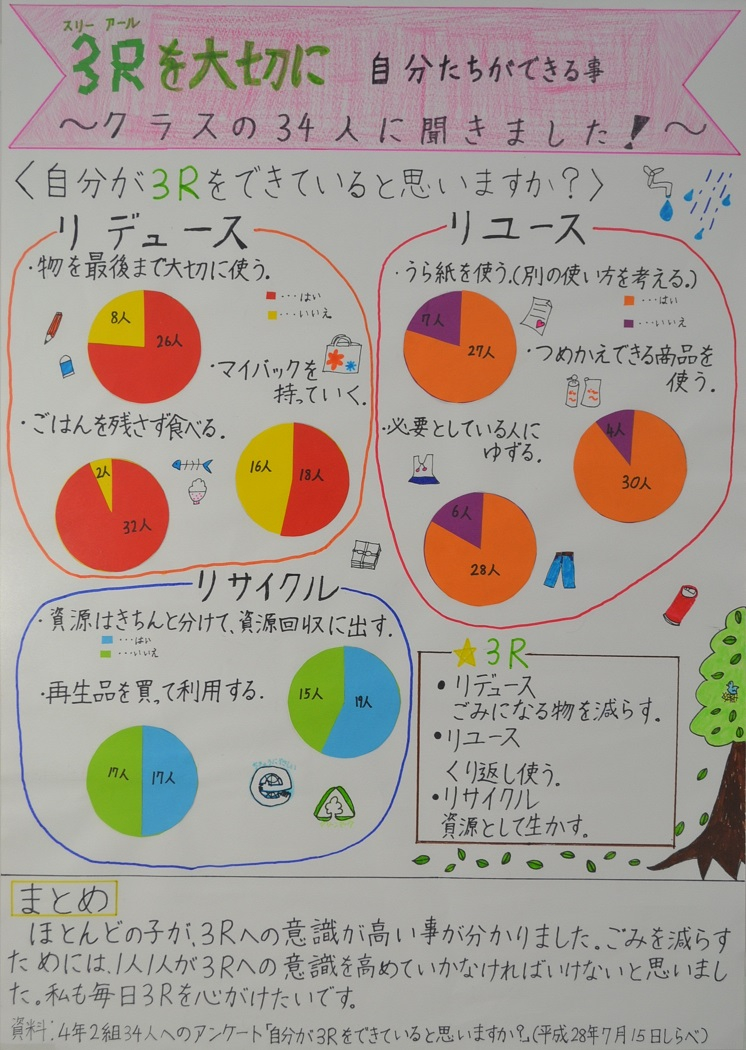 スリー アール
3Rを大切に 自分たちができる事
～クラスの34人に聞きました!～
〈自分が3Rをできていると思いますか？〉
リデュース
・物を最後まで大切に使う.
8人
26人
・・・はい
・・・いいえ
・マイバックを
持っていく.
16人
18人
・ごはんを残さず食べる.
2人
32人
リユース
・うら紙を使う.(別の使い方を考える.)
7人
27人
・・・はい
・・・いいえ
・つめかえできる商品を
使う.
4人
30人
・必要としている人に
ゆずる.
6人
28人
リサイクル
・資源はきちんと分けて、資源回収に出す.
・・・はい
・・・いいえ
15人
19人
・再生品を買って利用する.
17人
17人
3R
・リデュース
ごみになる物を減らす.
・リユース
くり返し使う.
・リサイクル
資源として生かす.
まとめ
ほとんどの子が、3Rへの意識が高い事が分かりました。ごみを減らす
ためには、1人1人が3Rへの意識を高めていかなければいけないと思いまし
た。私も毎日3Rを心がけたいです。
資料:4年2組34人へのアンケート「自分が3Rをできていると思いますか?」(平成28年7月15日しらべ)